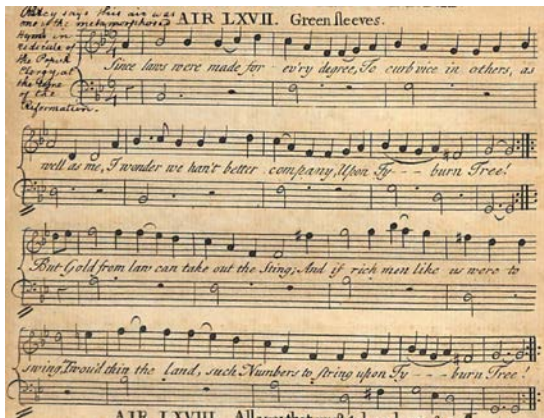 Percy says this air was
one of the metamorphosed
Hymns in
ridicule of
the Popish
Clergy at
the time
of the
Reformation.
AIR LXVII. Greensleeves.
Since laws were made for ev'ry degree, To curb vice in others, as
well as me, I wonder we han't better company, Upon Ty - - - burn Tree!
But Gold from law can take out the Sting; And if rich men like us were to
swing, 'Twou'd thin the land, such Numbers to string upon Ty - - - burn Tree!
AIR LXVIII.